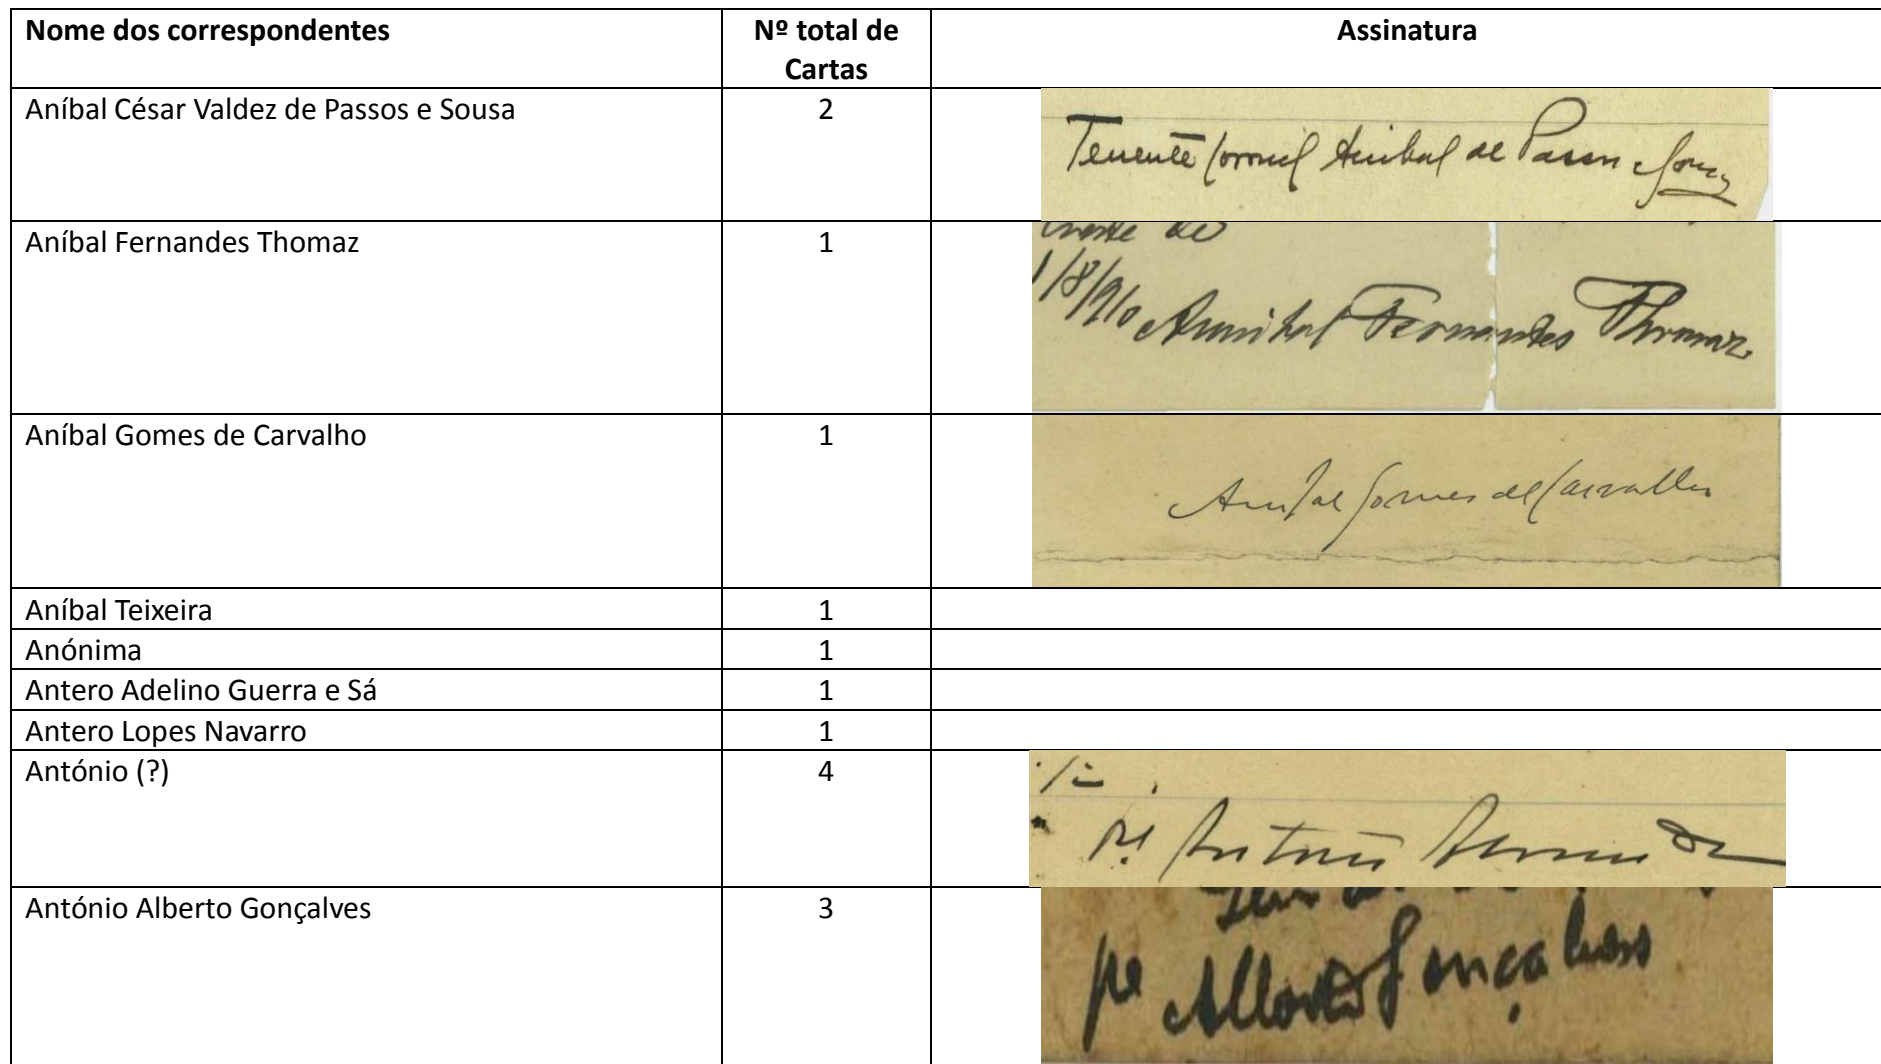 Nome dos correspondentes
Nº total de
Cartas
Assinatura
Aníbal César Valdez de Passos e Sousa
2
Tenente Coronel Anibal de Passos e Sousa
Aníbal Fernandes Thomaz
1
de
1/8/910 Annibal Fernandes Thomaz
Aníbal Gomes de Carvalho
1
Anibal Gomes de Carvalho
Aníbal Teixeira
1
Anónima
1
Antero Adelino Guerra e Sá
1
Antero Lopes Navarro
1
António (?)
4
Pe António
António Alberto Gonçalves
3
pe Alberto Gonçalves